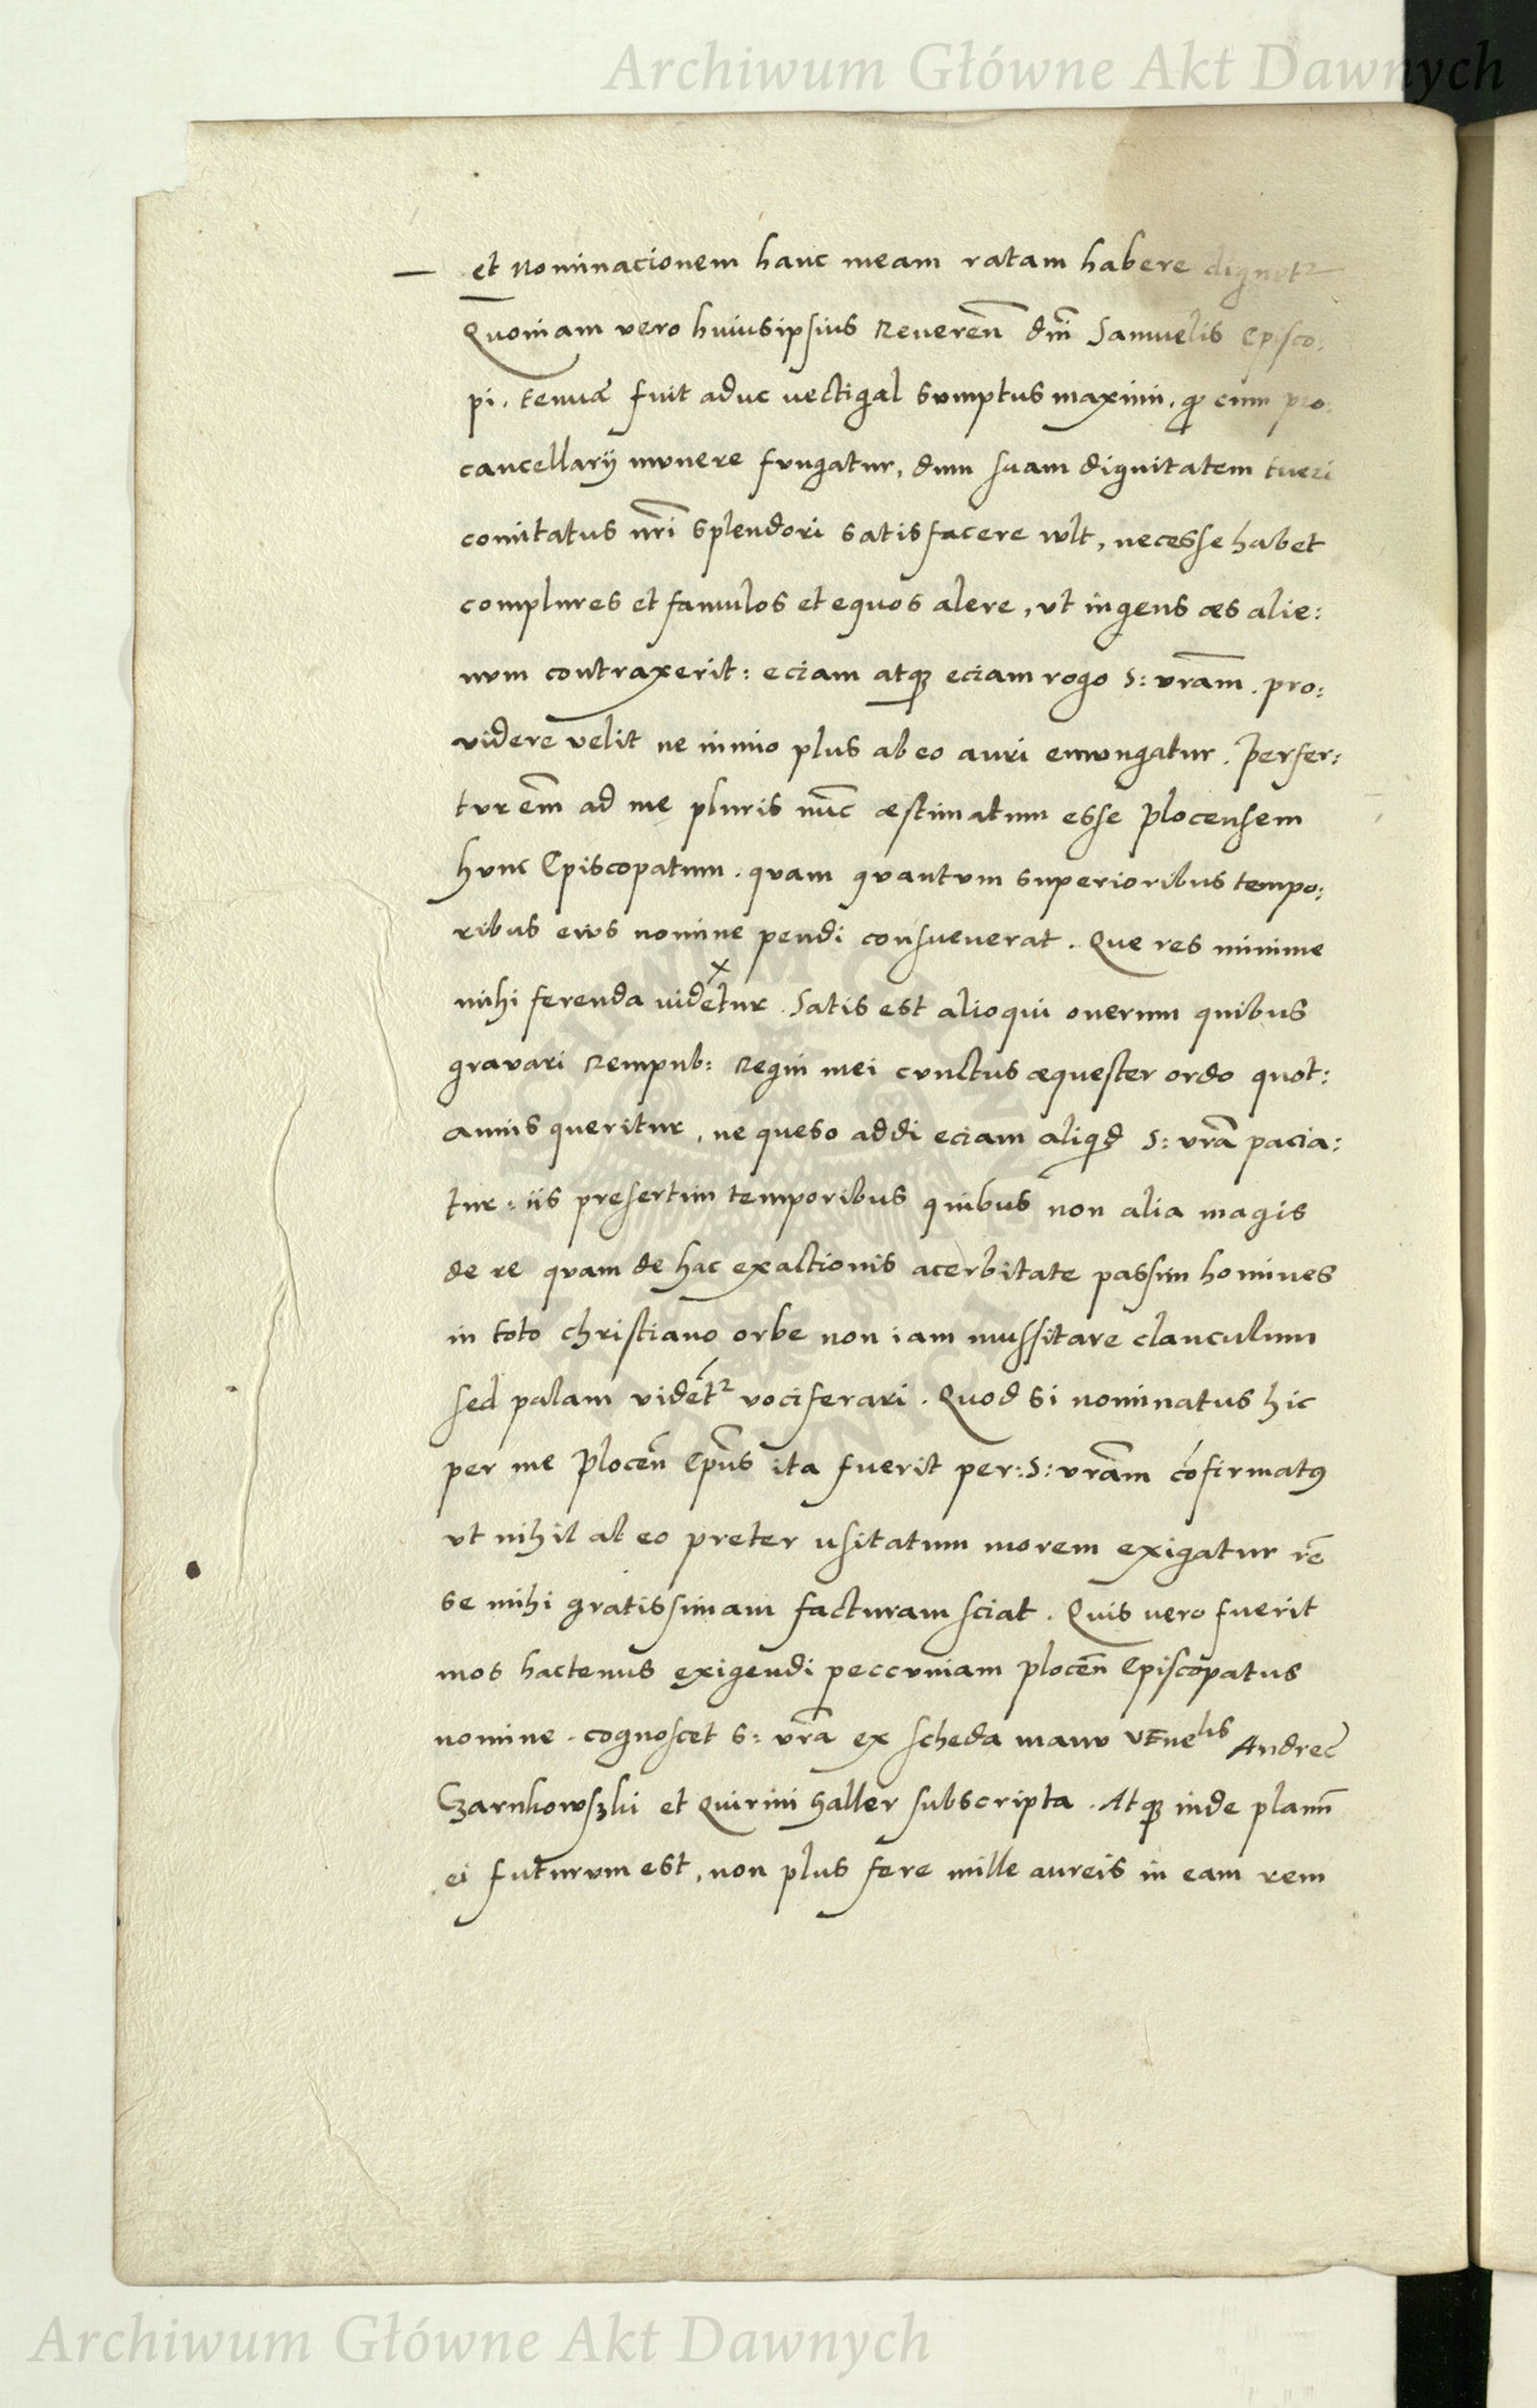 Archiwum Główne Akt Dawnych
— et Nominacionem hanc meam ratam habere dignet²
Quoniam vero huiusipsius Reveren̄ dn̄i Samuelis Episco:
pi. tenue fuit aduc vectigal sumptus maximi. qp cum pro:
cancellarij munere fungatur, dum suam dignitatem tueri
comitatus nr̄i splendori satisfacere wlt, necesse habet
complures et famulos et equos alere, vt ingens æs alie:
num contraxerit: eciam atqꝫ eciam rogo S: vr̄am. pro:
videre velit ne nimio plus ab eo auri emungatur. Perfer:
tur em̄ ad me pluris nūc æstimatum esse Plocensem
hunc Episcopatum. quam quantum superioribus tempo:
ribus eius nomine pendi consueverat. Que res minime
mihi ferenda videtur. Satis est alioqui onerum quibus
gravari Rempub: Regni mei cunctus æquester ordo quot:
annis queritur, ne queso addi eciam aliqd S: vr̄a pacia:
tur: iis presertim temporibus quibus non alia magis
de re quam de hac exactionis acerbitate passim homines
in toto christiano orbe non iam mussitare clanculum
sed palam vident² vociferari. Quod si nominatus hic
per me Plocen̄ Ep̄us ita fuerit per: S: vr̄am cōfirmatꝰ
vt nihil ab eo preter usitatum morem exigatur rē
se mihi gratissimam facturam sciat. Quis vero fuerit
mos hactenus exigendi peccuniam Plocen̄ Episcopatus
nomine. cognoscet S: vr̄a ex scheda manu Andree
Czarnkowsʒki et Quirini Haller subscripta. Atqꝫ inde planū
ei futurum est, non plus fere mille aureis in eam rem
Archiwum Główne Akt Dawnych